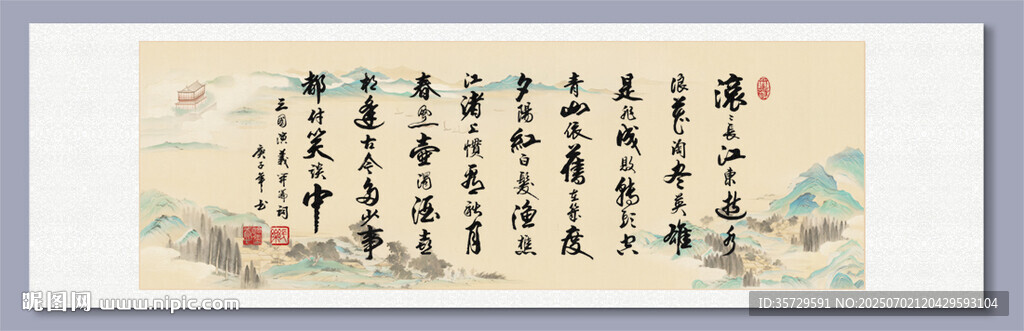 滚滚長江東逝水
浪花淘尽英雄
是非成敗轉頭空
青山依舊在幾度
夕陽紅白髮漁樵
江渚上慣看秋月
春風一壺濁酒喜
相逢古今多少事
都付笑談中
三國演義開篇詞
庚子年书
昵图网 www.nipic.com
ID:35729591 NO:20250702120429593104